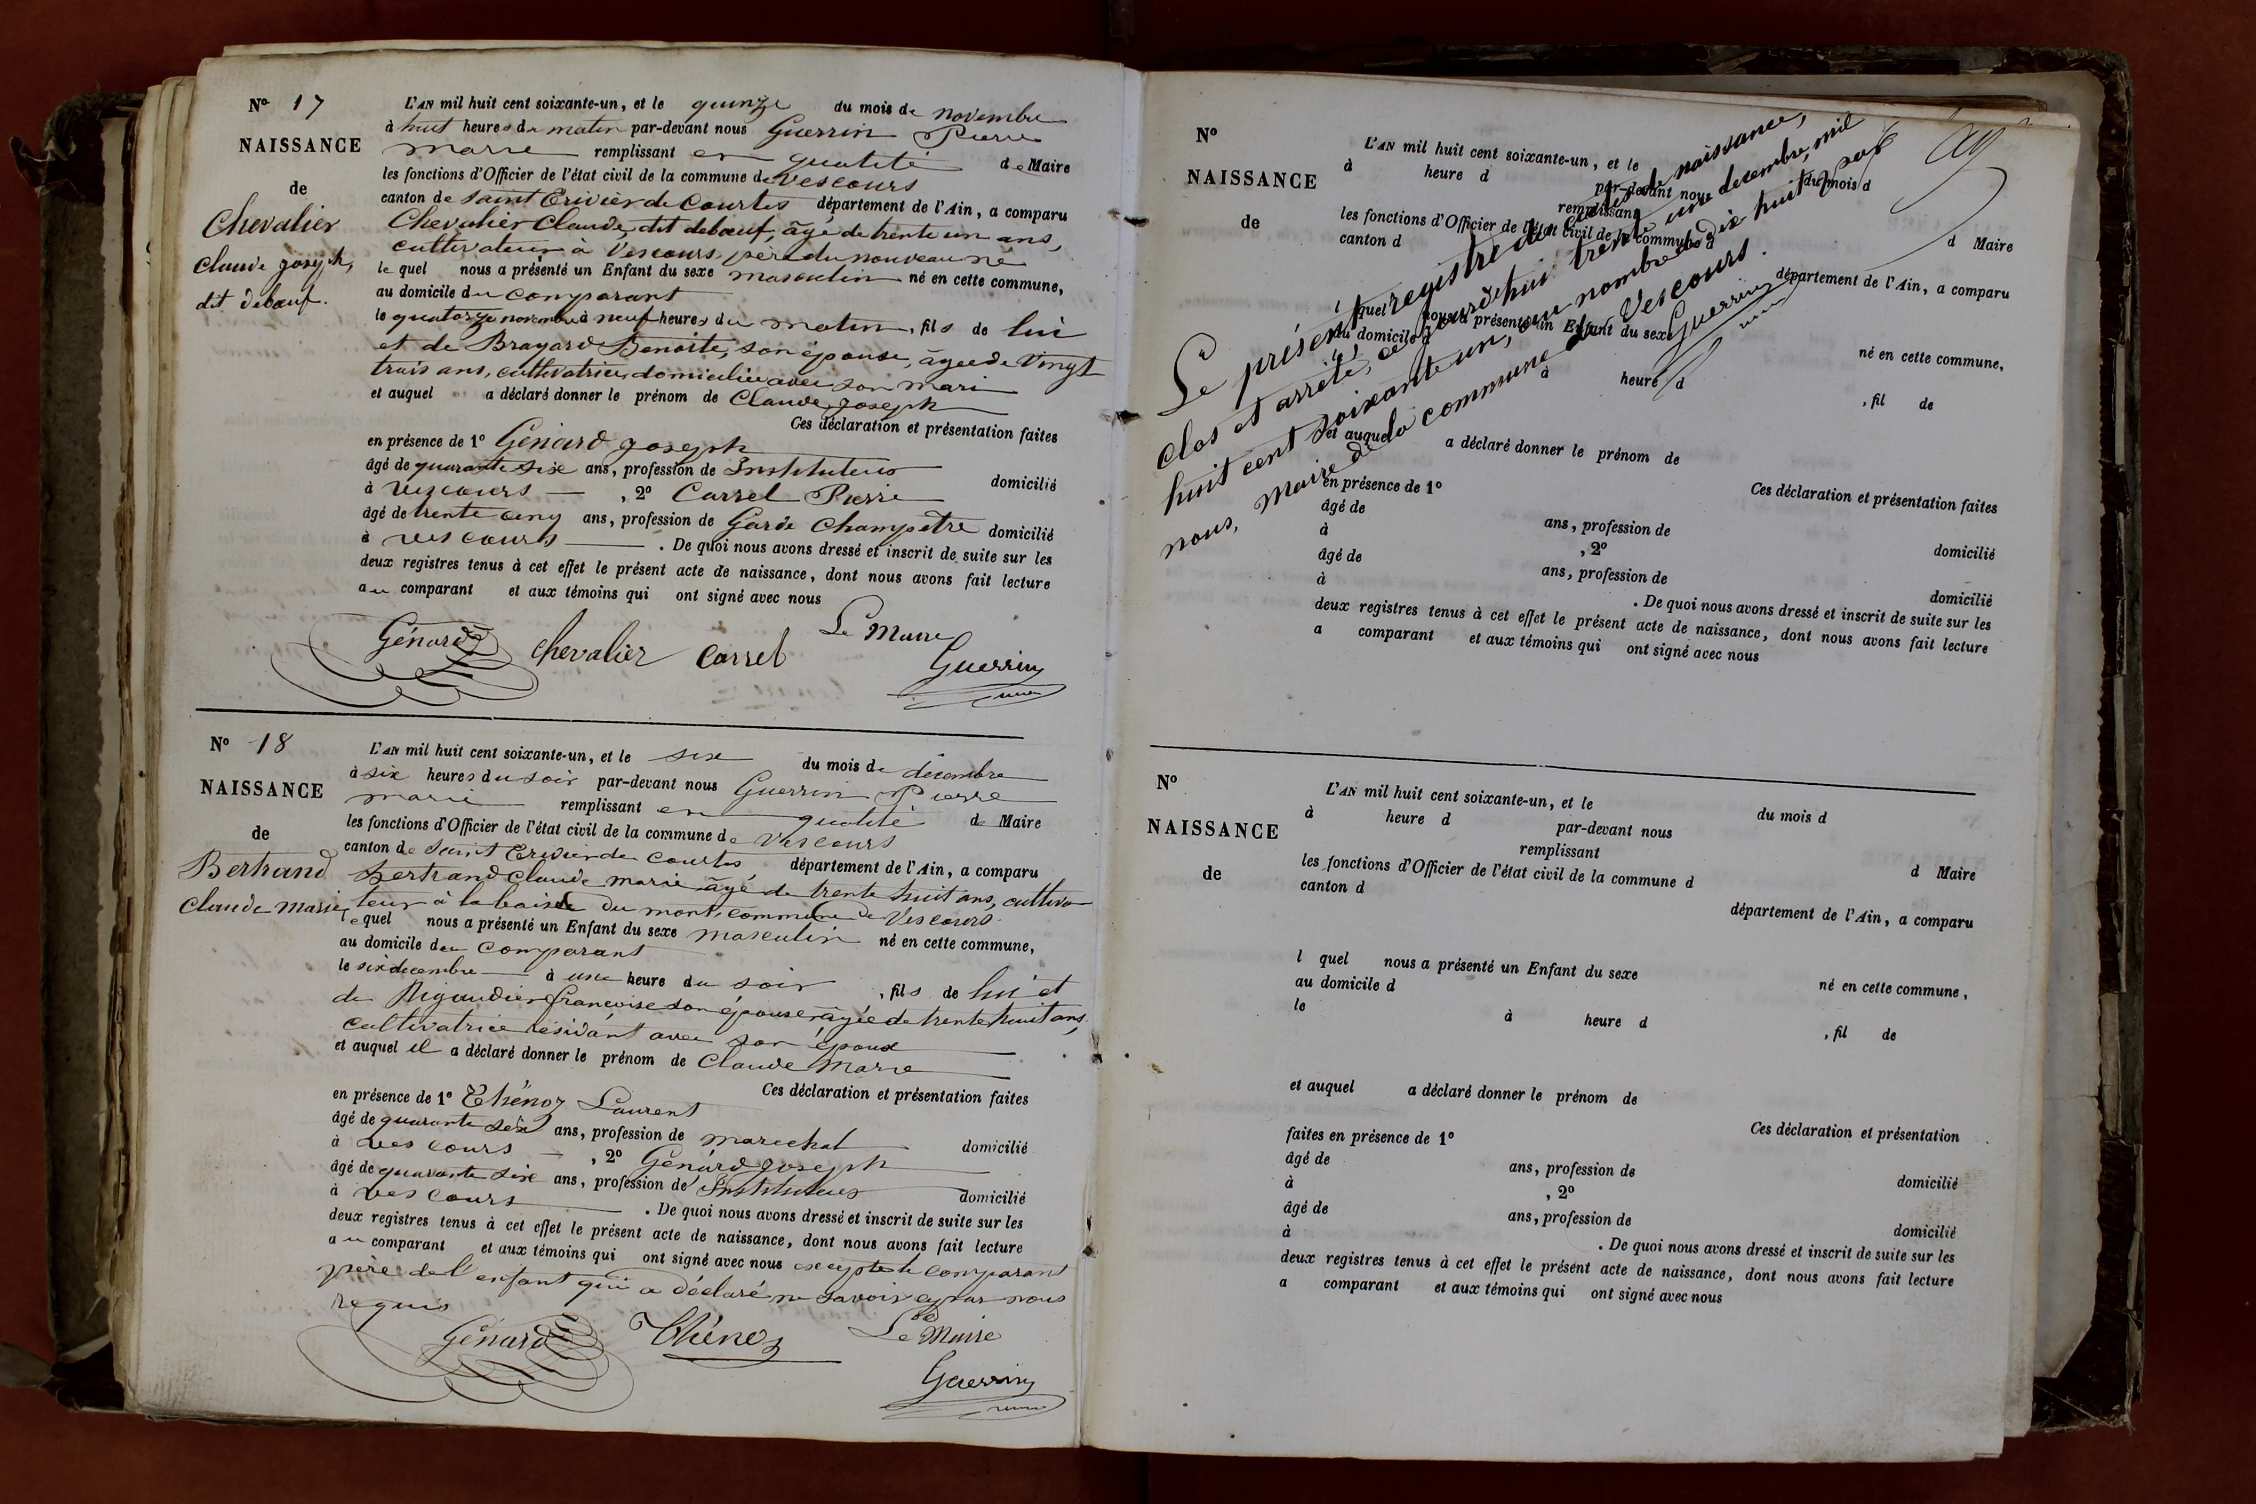 N° 17
NAISSANCE
de
Chevalier
Claude Joseph,
dit debœuf.
L'AN mil huit cent soixante-un, et le quinze du mois de novembre
à huit heures du matin par-devant nous Guerrin Pierre
marie remplissant en qualité de Maire
les fonctions d'Officier de l'état civil de la commune de Vescours
canton de Saint Trivier de Courtes département de l'Ain, a comparu
Chevalier Claude, dit debœuf, âgé de trente un ans,
cultivateur à Vescours, père du nouveau né
le quel nous a présenté un Enfant du sexe masculin né en cette commune,
au domicile du comparant
le quatorze novembre à neuf heures du matin, fils de lui
et de Brayard Benoite, son épouse, âgée de vingt
trois ans, cultivatrice, domiciliée avec son mari
et auquel a déclaré donner le prénom de Claude Joseph
Ces déclaration et présentation faites
en présence de 1° Génard Joseph
âgé de quarante six ans, profession de Instituteur domicilié
à Vescours, 2° Carrel Pierre
âgé de trente cinq ans, profession de Garde Champêtre domicilié
à Vescours. De quoi nous avons dressé et inscrit de suite sur les
deux registres tenus à cet effet le présent acte de naissance, dont nous avons fait lecture
au comparant et aux témoins qui ont signé avec nous
Génard Chevalier Carrel Le Maire
Guerrin
N° 18
NAISSANCE
de
Bertrand
Claude Marie,
L'AN mil huit cent soixante-un, et le six du mois de décembre
à six heures du soir par-devant nous Guerrin Pierre
marie remplissant en qualité de Maire
les fonctions d'Officier de l'état civil de la commune de Vescours
canton de Saint Trivier de Courtes département de l'Ain, a comparu
Bertrand Claude Marie âgé de trente huit ans, cultiva
teur à la baisse du mont, commune de Vescours
lequel nous a présenté un Enfant du sexe masculin né en cette commune,
au domicile du comparant
le six décembre à une heure du soir, fils de lui et
de Rigaudier françoise son épouse, âgée de trente huit ans,
cultivatrice résidant avec son époux
et auquel il a déclaré donner le prénom de Claude Marie
Ces déclaration et présentation faites
en présence de 1° Thénoz Laurent
âgé de quarante six ans, profession de marechal domicilié
à Vescours, 2° Génard Joseph
âgé de quarante six ans, profession de Instituteur domicilié
à Vescours. De quoi nous avons dressé et inscrit de suite sur les
deux registres tenus à cet effet le présent acte de naissance, dont nous avons fait lecture
au comparant et aux témoins qui ont signé avec nous excepté le comparant
père de l'enfant qui a déclaré ne savoir ce par nous
requis
Génard Thénoz Le Maire
Guerrin
N°
NAISSANCE
de
L'AN mil huit cent soixante-un, et le du mois d
à heure d par-devant nous
remplissant d Maire
les fonctions d'Officier de l'état civil de la commune d
canton d département de l'Ain, a comparu
l quel nous a présenté un Enfant du sexe né en cette commune,
au domicile d
le à heure d, fil de
et auquel a déclaré donner le prénom de
Ces déclaration et présentation faites
en présence de 1°
âgé de ans, profession de domicilié
à, 2°
âgé de ans, profession de domicilié
à. De quoi nous avons dressé et inscrit de suite sur les
deux registres tenus à cet effet le présent acte de naissance, dont nous avons fait lecture
a comparant et aux témoins qui ont signé avec nous
Le présent registre des actes de naissance,
clos et arrêté, ce jourd'hui trente une decembre, mil
huit cent soixante un, au nombre de dix huit, par
nous, Maire de la commune de Vescours.
Guerrin
N°
NAISSANCE
de
L'AN mil huit cent soixante-un, et le du mois d
à heure d par-devant nous
remplissant d Maire
les fonctions d'Officier de l'état civil de la commune d
canton d département de l'Ain, a comparu
l quel nous a présenté un Enfant du sexe né en cette commune,
au domicile d
le à heure d, fil de
et auquel a déclaré donner le prénom de
Ces déclaration et présentation
faites en présence de 1°
âgé de ans, profession de domicilié
à, 2°
âgé de ans, profession de domicilié
à. De quoi nous avons dressé et inscrit de suite sur les
deux registres tenus à cet effet le présent acte de naissance, dont nous avons fait lecture
a comparant et aux témoins qui ont signé avec nous